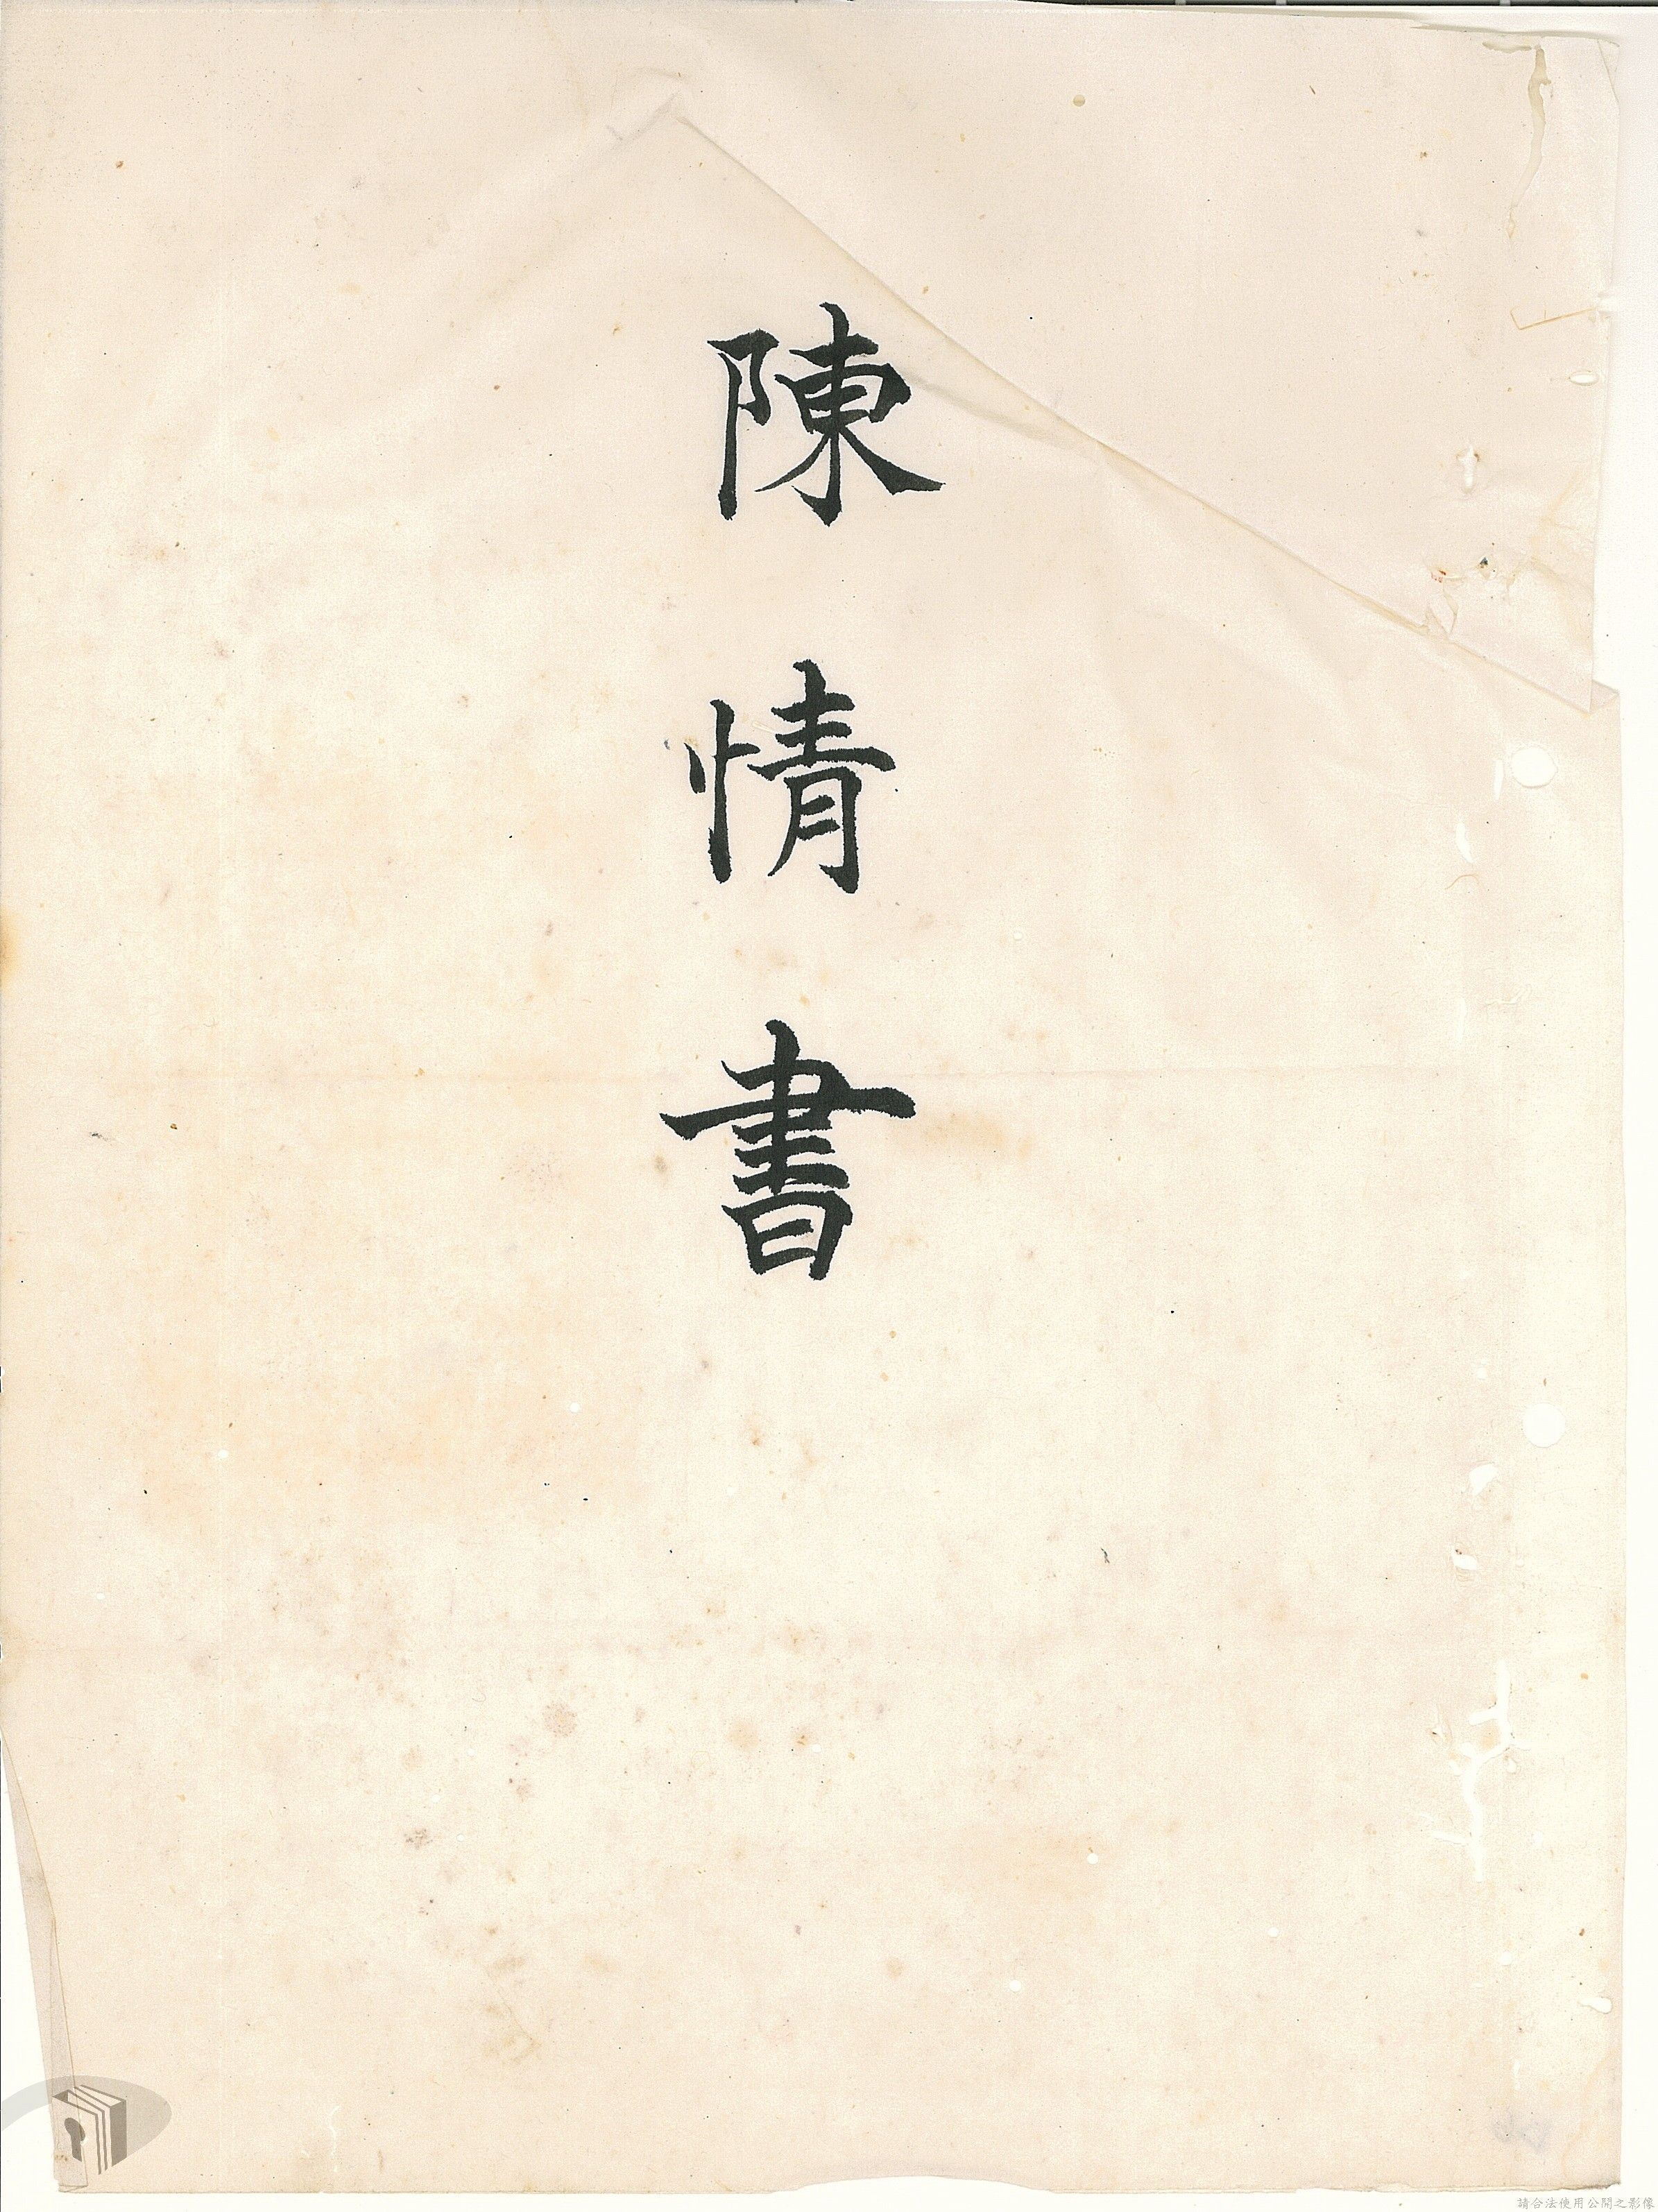 陳情書
請合法使用公開之影像